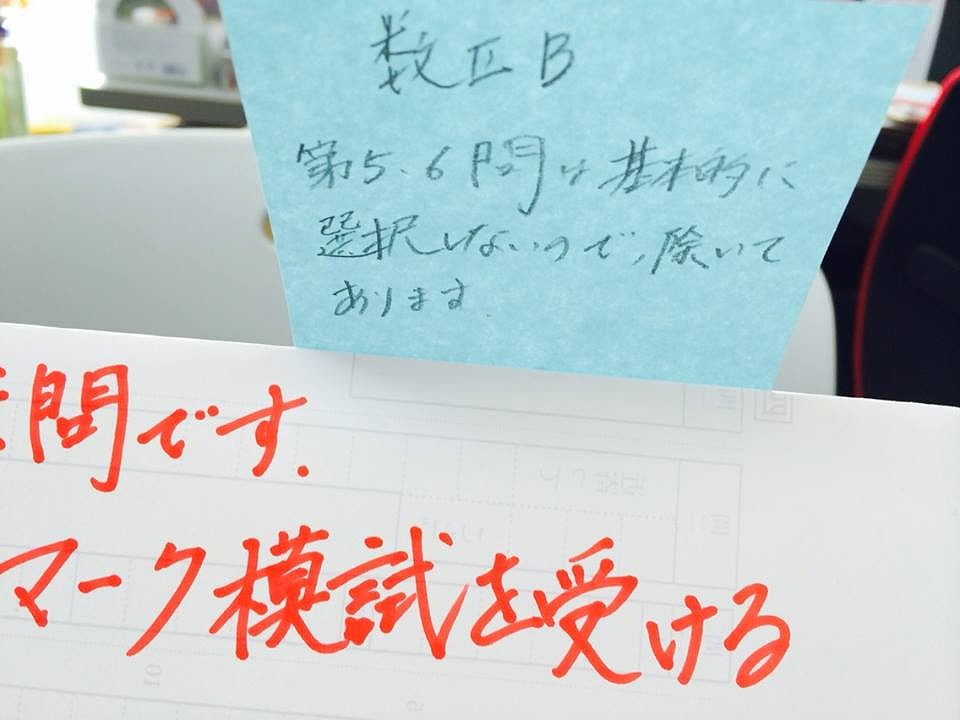 数ⅡB
第5、6問は基本的に
選択しないので、除いて
あります.
問です.
マーク模試を受ける